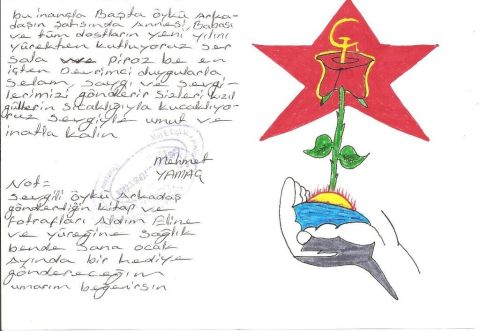 bu inançla Başta öykü Arka-
daşın şahsında Annesi, Babası
ve tüm dostların yeni yılını
yürekten kutluyoruz ser
sala we piroz be en
içten Devrimci duygularla
selam saygı ve sevgi-
lerimizi gönderir sizleri kızıl
güllerin sıcaklığıyla kucaklıyo-
ruz sevgiyle umut ve
inatla kalın
Mehmet
YAMAÇ
Not=
sevgili öykü Arkadaş
gönderdiğin kitap ve
fotrafları Aldım Eline
ve yüreğine sağlık
bende sana ocak
Ayında bir hediye
göndereceğim
umarım beğenirsin